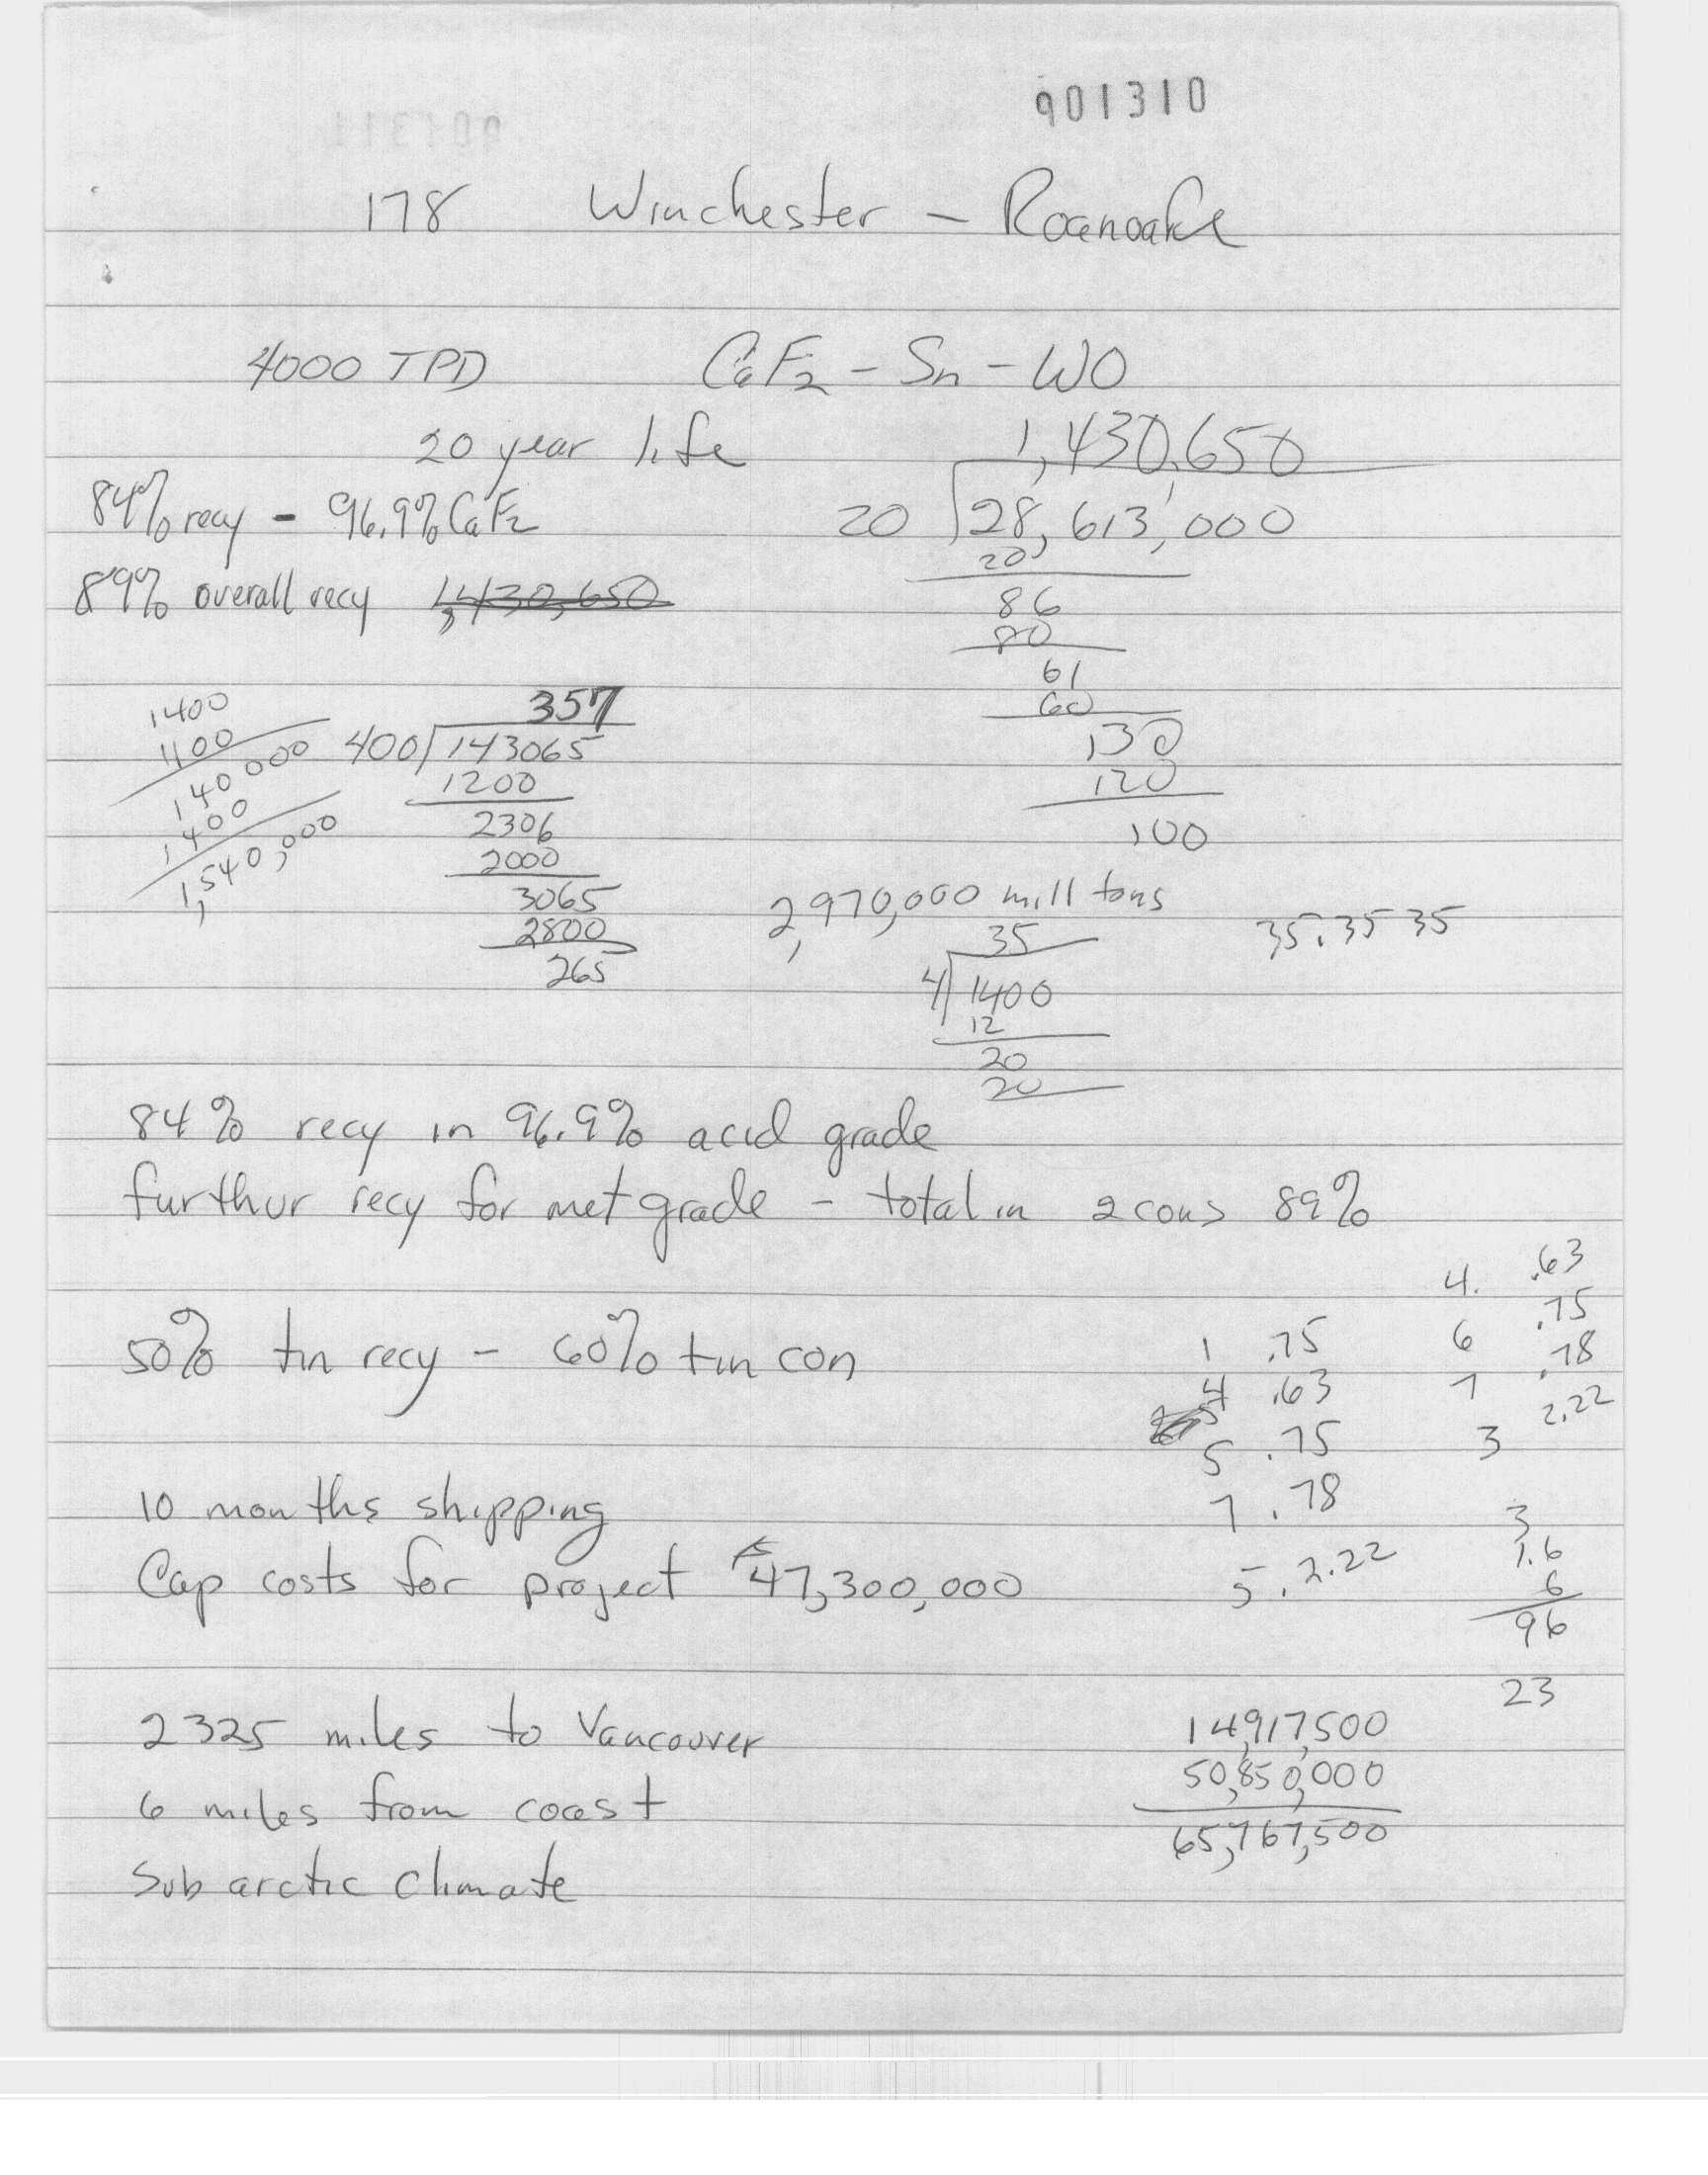 901310
178 Winchester - Roanoake
4000 TPD CaF2 - Sn - WO
20 year life 1,430,650
84% recy - 96.9% CaF2 20 28,613,000
20
89% overall recy 1,430,650 86
80
61
60
130
120
100
1400
1100
140 000
1400
1,540,000
357
400 143065
1200
2306
2000
3065
2800
265
2,970,000 mill tons
35 35.35 35
4 1400
12
20
20
84% recy in 96.9% acid grade
furthur recy for met grade - total in 2 cons 89%
50% tin recy - 60% tin con
1 .75
4 .63
5 .75
7 .78
5. 2.22
4. .63
6 .75
7 .78
3 2.22
3
1.6
6
96
23
10 months shipping
Cap costs for project 47,300,000
2325 miles to Vancouver
6 miles from coast
Sub arctic climate
14,917,500
50,850,000
65,767,500